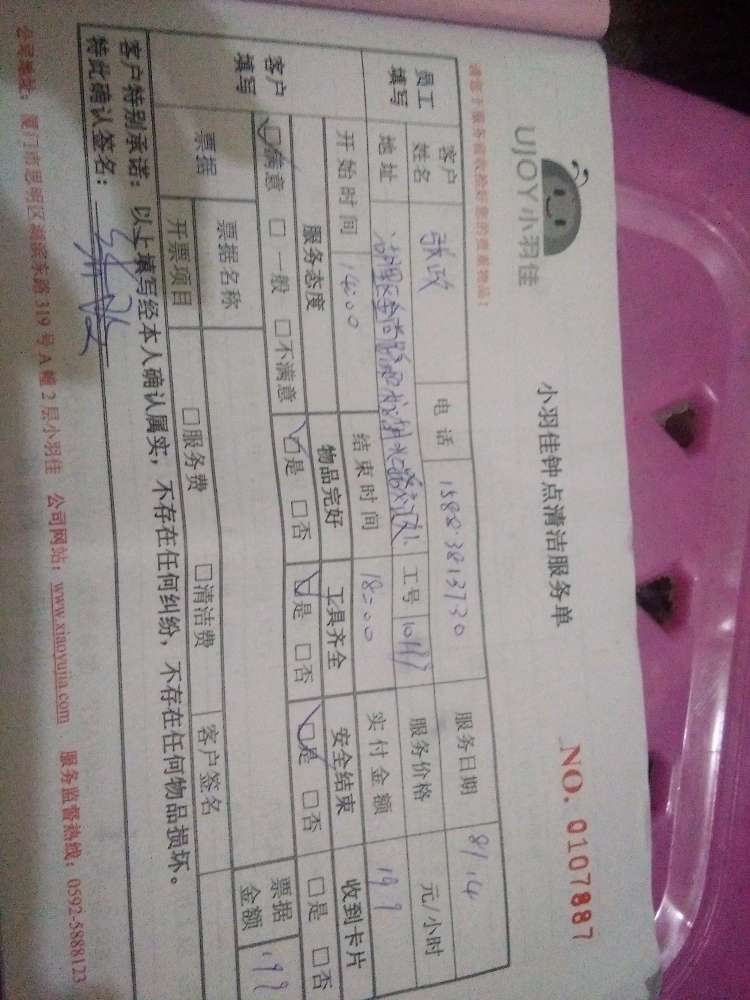 UJOY小羽佳
小羽佳钟点清洁服务单
NO. 0107887
请您于服务前收拾好您的贵重物品!
员工填写
客户姓名
电话
服务日期 8/14
地址
工号
服务价格 元/小时
开始时间 14:00 结束时间 18:00 实付金额 199
客户填写
服务态度 物品完好 工具齐全 安全结束 收到卡片
☑满意 □一般 □不满意 ☑是 □否 ☑是 □否 ☑是 □否 □是 □否
票据 票据名称 票据金额 199
开票项目 □服务费 □清洁费 客户签名
客户特别承诺:以上填写经本人确认属实,不存在任何纠纷,不存在任何物品损坏。
特此确认签名:
公司地址:厦门市思明区湖滨东路319号A幢2层小羽佳 公司网站:www.xiaoyujia.com 服务监督热线:0592-5888123